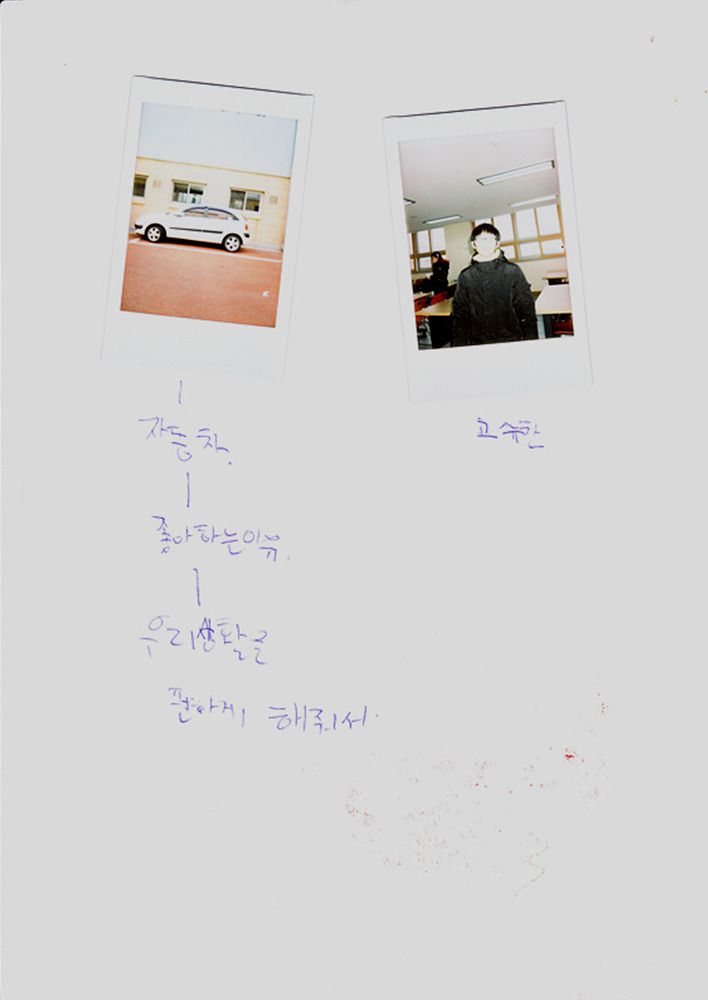 자동차.
좋아하는이유.
우리생활을
편하게 해줘서.
고수한